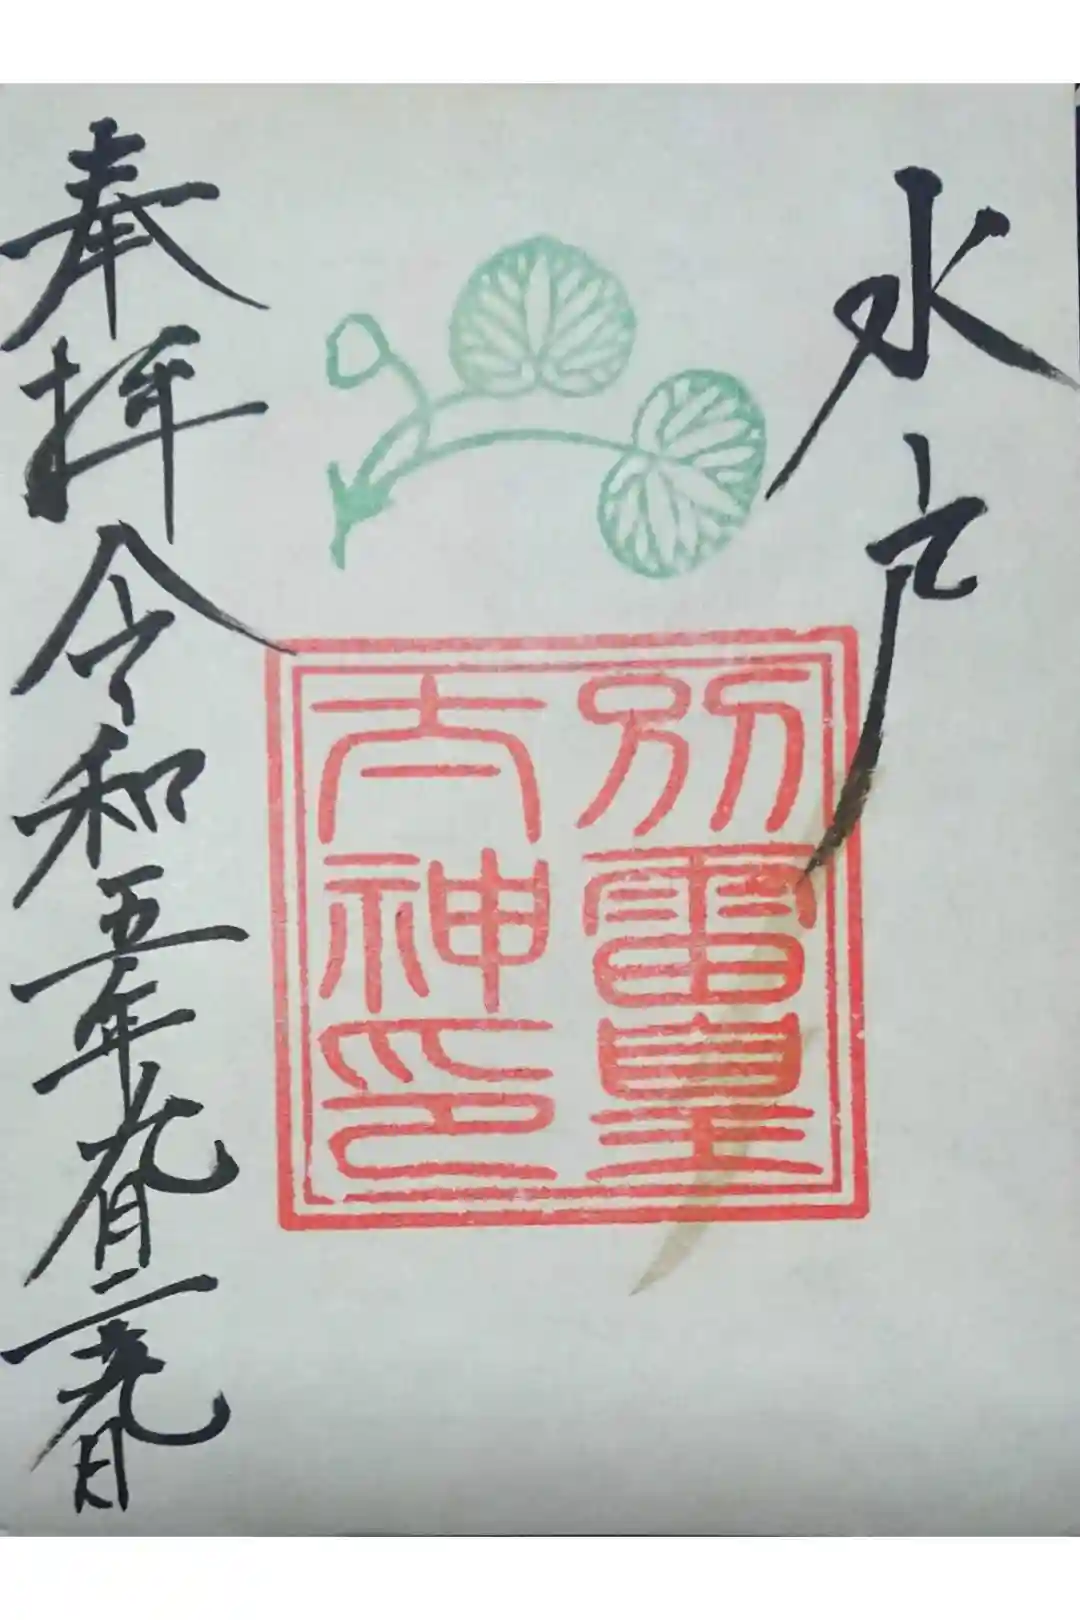 水戸
別雷皇
太神印
奉拝令和五年九月二十九日